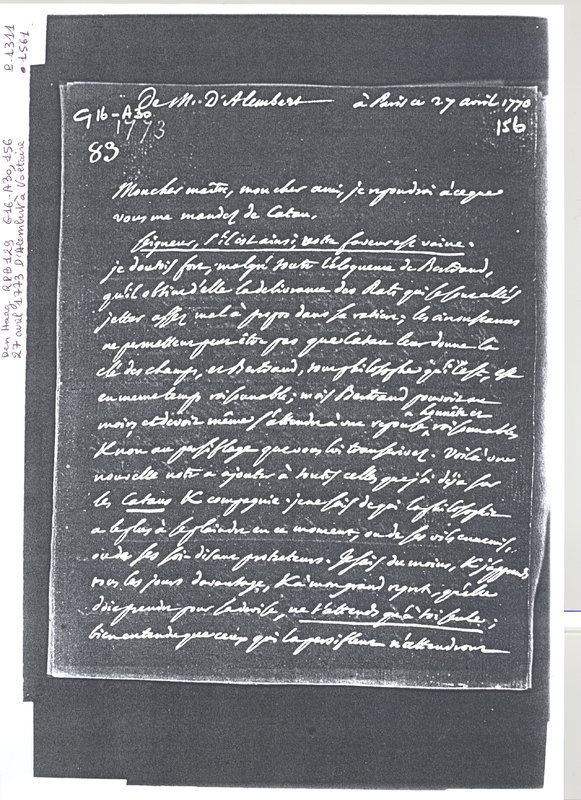 B.1311
•1561
Den Haag RPB129 G16-A30, 156
27 avril 1773 D'Alembert à Voltaire
De M. D'Alembert à Paris ce 27 avril 1770
G16-A30
1773
156
83
Mon cher maître, mon cher ami, je repondrai à ce que
vous me mandez de Catau,
Seigneur, s'il est ainsi, votre faveur est vaine.
je doutois fort, malgré toute l'éloquence de Bertrand,
qu'il obtint d'elle la delivrance des Rats qui se sont allés
jetter assez mal à propos dans la ratiere; les circonstances
ne permettent peut être pas que Catau leur donne la
clé des champs, et Bertrand, tout philosophe qu'il est, est
en meme temps raisonnable; mais Bertrand pouvoit au
moins et devoit même s'attendre à une reponse honnête et raisonnable,
& non au persiflage que vous lui transcrivez. Voilà une
nouvelle note a ajouter à toutes celles que j'ai déja sur
les Cataus & compagnie. je ne sais de qui la philosophie
a le plus à se plaindre en ce moment, ou de ses vils ennemis,
ou de ses soi-disant protecteurs. Je sais du moins, & j'apprends
tous les jours davantage, & à mon grand regret, qu'elle
doit prendre pour sa devise, ne t'attends qu'à toi seule;
bien entendu que ceux qui la persiflent n'attendront